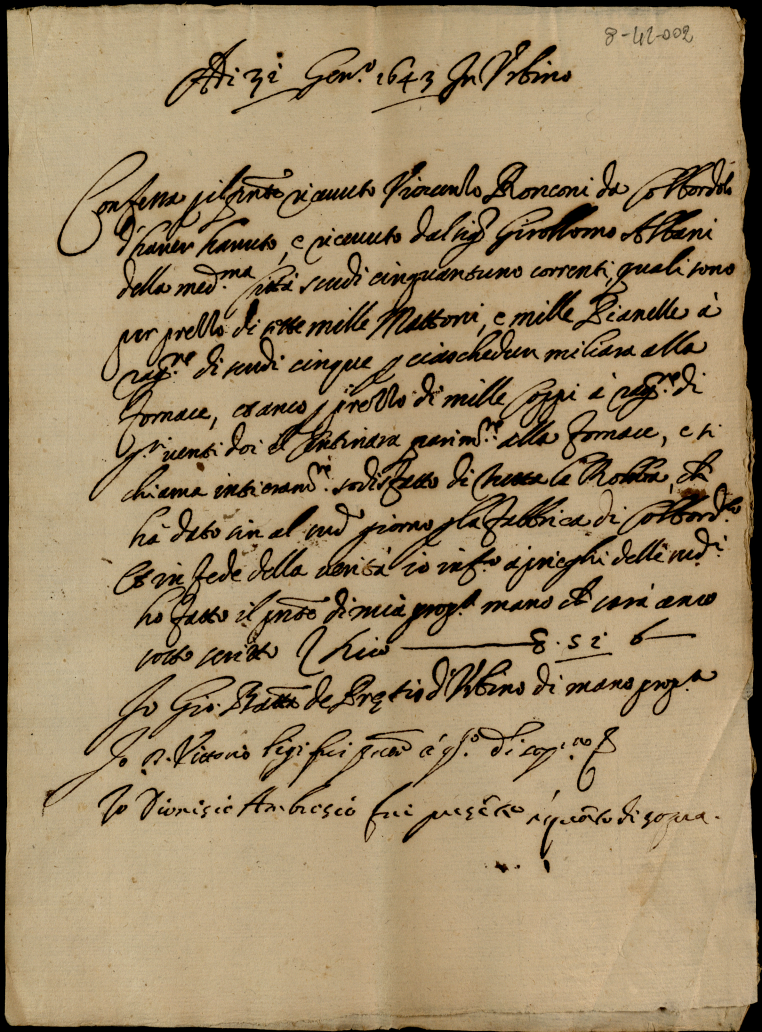 8-42-002
Adi 31 Gen.o 1643 In Urbino
Confessa p il pnte ricevuto Vincenzo Ronconi da Colbordolo
d'haver havuto, e ricevuto dal sig.r Girollomo Albani
della med.ma Città scudi cinquantuno correnti, quali sono
per prezzo di sette mille Mattoni, e mille Pianelle à
rag.ne di scudi cinque p ciaschedun miliara alla
fornace, et anco p prezzo di mille Coppi à rag.ne di
venti doi il Centinara parim.te alla fornace, e si
chiama intieram.te sodisfatto di tutta la Robba, ch
ha dato sin al giorno p la fabbrica di Colbord.lo
Et in fede della verità io inf.o a prieghi delli
ho fatto il pnte di mia prop.a mano ch sarà anco
sotto scritto Dico 51 6
Io Gio. Batta de Pretis d'Urbino di mano prop.a
Io Vittorio ligi fui pnte à q.to di sop.a
Io Dionisio Ambrosio fui presete à quato di sopra.